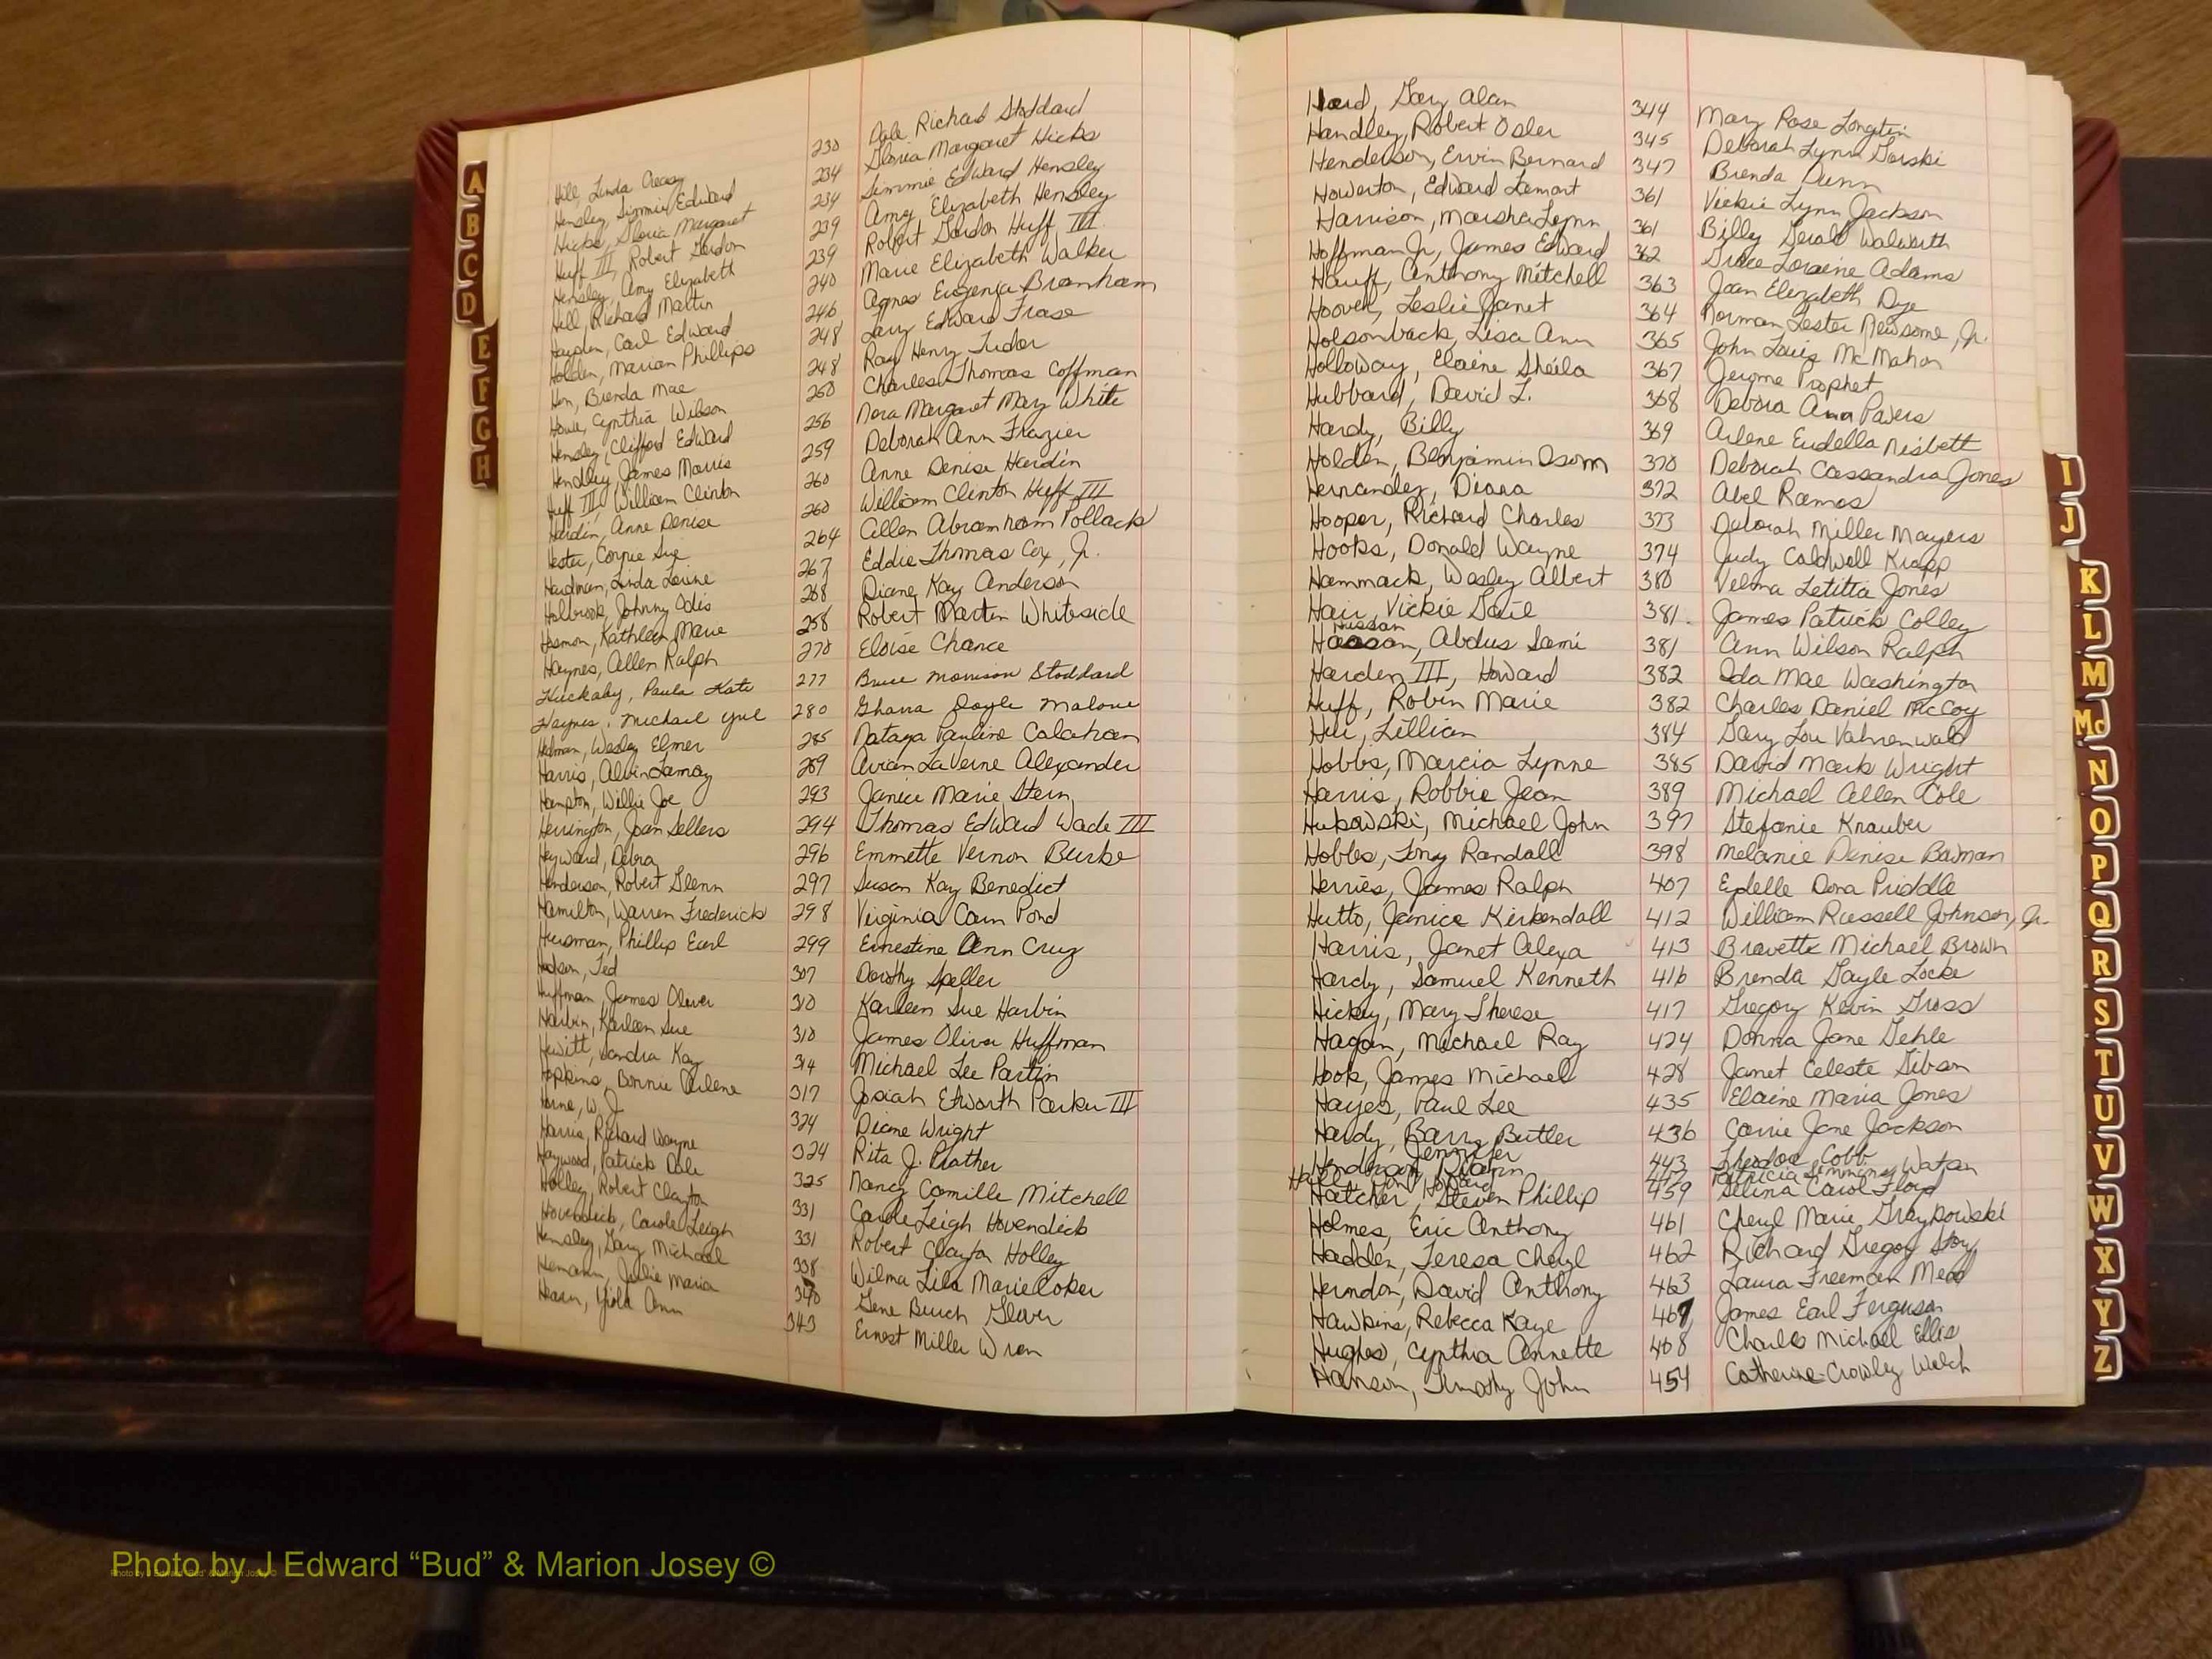 A
B
C
D
E
F
G
H
Hill, Linda Creasy 230 Dale Richard Stoddard
Hensley, Jimmie Edward 234 Gloria Margaret Hicks
Hicks, Gloria Margaret 234 Jimmie Edward Hensley
Huff III, Robert Gordon 239 Amy Elizabeth Hensley
Hensley, Amy Elizabeth 239 Robert Gordon Huff III
Hill, Richard Martin 240 Marie Elizabeth Walker
Hayden, Carl Edward 246 Agnes Eugenia Bramham
Holden, Marian Phillips 248 Lary Edward Frase
Hon, Brenda Mae 248 Ray Henry Tudor
Howe, Cynthia Wilson 250 Charles Thomas Coffman
Hensley, Clifford Edward 256 Nora Margaret Mary White
Hendley, James Morris 259 Deborah Ann Frazier
Huff III, William Clinton 260 Anne Denise Hardin
Hardin, Anne Denise 260 William Clinton Huff III
Hester, Connie Sue 264 Allen Abramham Pollack
Hardman, Linda Louise 267 Eddie Thomas Cox, Jr.
Holbrook, Johnny Odis 268 Diane Kay Anderson
Hosmon, Kathleen Marie 258 Robert Martin Whiteside
Haynes, Allen Ralph 270 Eloise Chance
Huckaby, Paula Kate 277 Bruce Morrison Stoddard
Haynes, Michael Yul 280 Ghana Doyle Malone
Holman, Wesley Elmer 285 Nataya Pauline Calahan
Harris, Alvin Lamay 289 Avian LaVerne Alexander
Hampton, Willie Joe 293 Janice Marie Stern
Herrington, Joan Sellers 294 Thomas Edward Wade III
Heyward, Debra 296 Emmette Vernon Burke
Henderson, Robert Glenn 297 Susan Kay Benedict
Hamilton, Warren Frederick 298 Virginia Cam Pond
Huisman, Phillip Earl 299 Ernestine Ann Cruz
Hudson, Ted 307 Dorothy Speller
Huffman, James Oliver 310 Karleen Sue Harbin
Harbin, Karleen Sue 310 James Oliver Huffman
Hewitt, Sandra Kay 314 Michael Lee Partin
Hopkins, Bonnie Arlene 317 Josiah Etworth Parker III
Horne, W. J. 324 Diane Wright
Harris, Richard Wayne 324 Rita J. Prather
Haywood, Patrick Dale 325 Nancy Camille Mitchell
Holley, Robert Clayton 331 Carole Leigh Hovendick
Hovendick, Carole Leigh 331 Robert Clayton Holley
Hensley, Gary Michael 338 Wilma Lila Marie Coker
Hemann, Julie Maria 340 Gene Burch Glover
Hearn, Viola Ann 343 Ernest Miller Wren
Hoard, Gary Alan 344 Mary Rose Longtin
Handley, Robert Osler 345 Deborah Lynn Gorski
Henderson, Ervin Bernard 347 Brenda Dunn
Howerton, Edward Lamont 361 Vickie Lynn Jackson
Harrison, Marsha Lynn 361 Billy Gerald Walworth
Hoffman Jr, James Edward 362 Grace Loraine Adams
Hauff, Anthony Mitchell 363 Joan Elizabeth Dye
Hoover, Leslie Janet 364 Norman Lester Newsome, Jr.
Holsonback, Lisa Ann 365 John Louis McMahon
Holloway, Elaine Sheila 367 Jerome Prophet
Hubbard, David L. 368 Debora Ann Pavers
Hardy, Billy 369 Arlene Eudella Nisbett
Holden, Benjamin Osorn 370 Deborah Cassandra Jones
Hernandez, Diana 372 Abel Ramos
Hooper, Richard Charles 373 Deborah Miller Mayers
Hooks, Donald Wayne 374 Judy Caldwell Krapp
Hammack, Wesley Albert 380 Velma Letitia Jones
Hair, Vickie Gail 381. James Patrick Colley
Hussan
Abdus Sami 381 Ann Wilson Ralph
Harden III, Howard 382 Ida Mae Washington
Huff, Robin Marie 382 Charles Daniel McCoy
Hill, Lillian 384 Gary Lou Vahrenwald
Hobbs, Marcia Lynne 385 David Mark Wright
Harris, Robbie Jean 389 Michael Allen Cole
Hukowski, Michael John 397 Stefanie Knauber
Hobbs, Tony Randall 398 Melanie Denise Bauman
Herries, James Ralph 407 Eydelle Dona Priddle
Hutto, Janice Kirkendall 412 William Russell Johnson, Jr.
Harris, Janet Alexa 413 Bravette Michael Brown
Hardy, Samuel Kenneth 416 Brenda Gayle Locke
Hickey, Mary Therese 417 Gregory Kevin Gross
Hagan, Michael Ray 424 Donna Jane Gehle
Hook, James Michael 428 Janet Celeste Gibson
Hayes, Paul Lee 435 Elaine Maria Jones
Hardy, Barry Butler 436 Carrie Jane Jackson
Henderson, Jennifer 443 Theodore Cobb
Hall Howard Patricia Simmons Watson
Hatcher, Steven Phillip 459 Selina Carol Floyd
Holmes, Eric Anthony 461 Cheryl Marie Graykowski
Hadden, Teresa Cheryl 462 Richard Gregory Story
Herndon, David Anthony 463 Laura Freeman Mead
Hawkins, Rebecca Kaye 467 James Earl Ferguson
Hughes, Cynthia Annette 468 Charles Michael Ellis
Hanson, Timothy John 454 Catherine Crowley Welch
I
J
K
L
M
Mc
N
O
P
Q
R
S
T
U
V
W
X
Y
Z
Photo by J Edward “Bud” & Marion Josey ©
Photo by J Edward “Bud” & Marion Josey ©